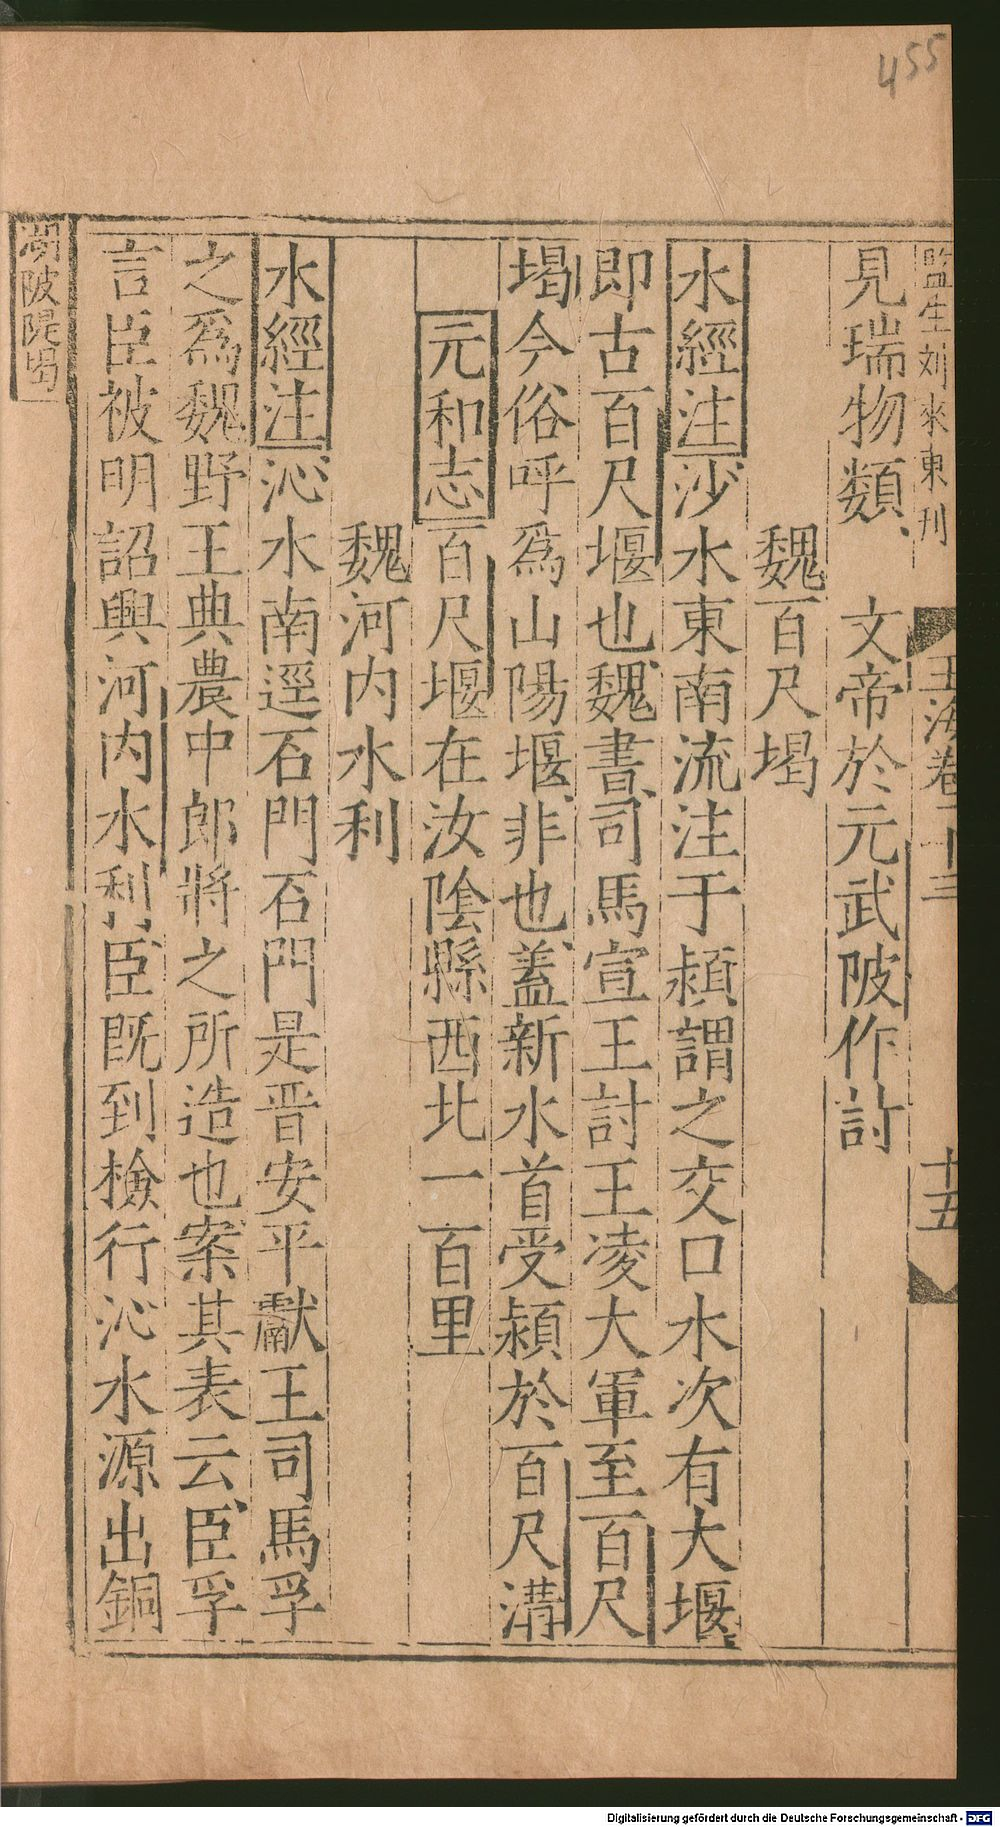 455
監生刘來東刊
玉海卷二十三
十五
見瑞物類 文帝於元武陂作詩
魏百尺堨
水經注沙水東南流注于潁謂之交口水次有大堰
即古百尺堰也魏書司馬宣王討王凌大軍至百尺
堨今俗呼爲山陽堰非也蓋新水首受潁於百尺溝
元和志百尺堰在汝陰縣西北一百里
魏河内水利
水經注沁水南逕石門石門是晋安平獻王司馬孚
之爲魏野王典農中郎將之所造也案其表云臣孚
言臣被明詔興河内水利臣既到檢行沁水源出銅
湖陂隄堨
Digitalisierung gefördert durch die Deutsche Forschungsgemeinschaft - DFG